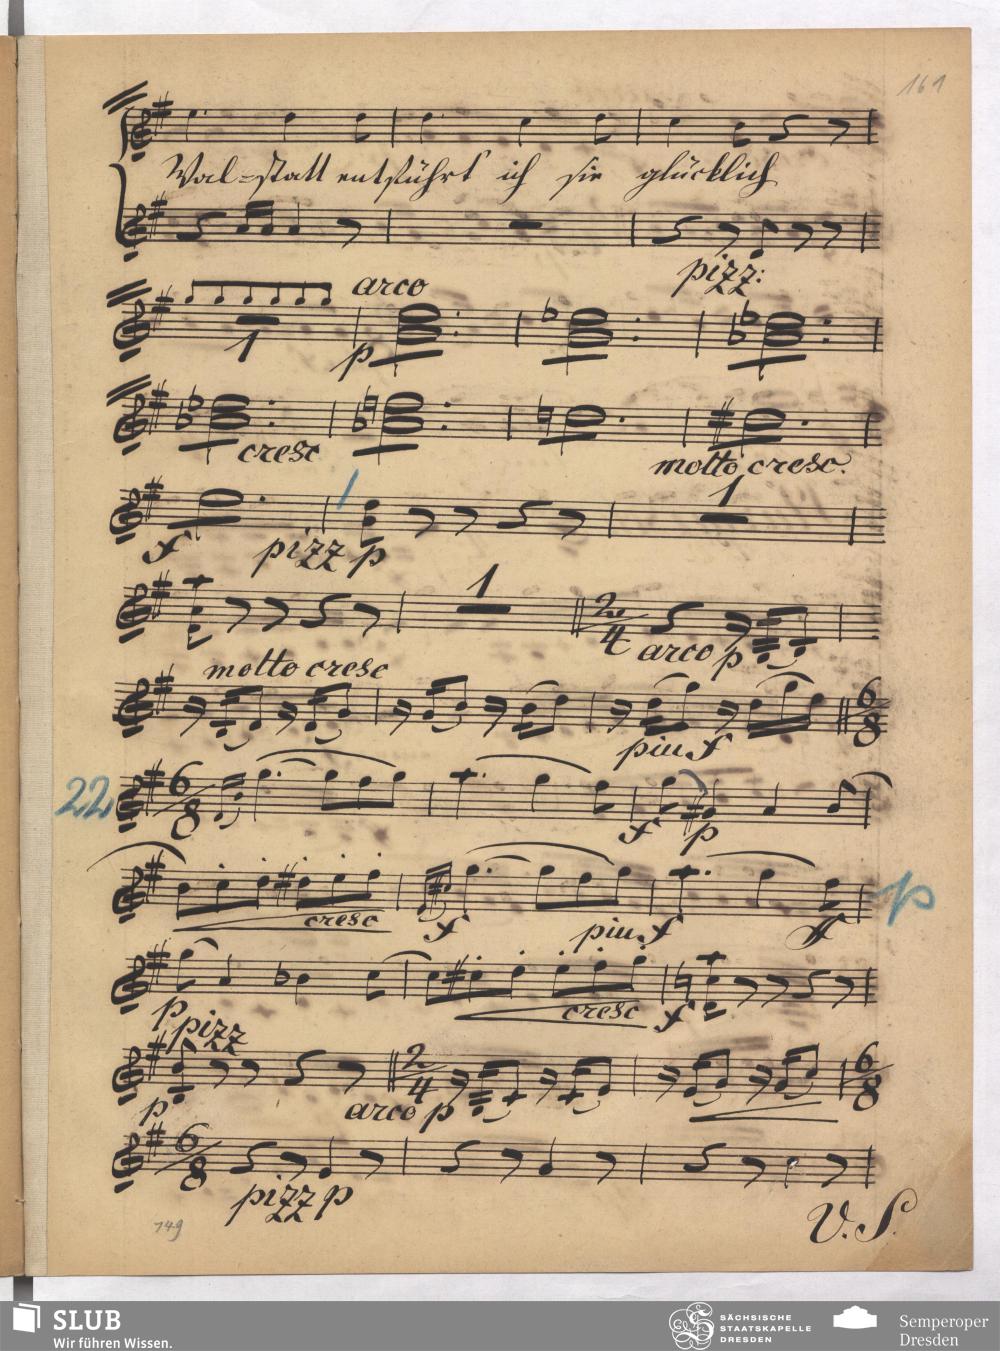 161
Wal=statt entführt ich sie glücklich
pizz:
arco
1
p
cresc
molto cresc.
1
f pizz p
1
2/4 arco p
molto cresc
piu f
6/8
22
6/8
f p
cresc f piu f ff
p
p cresc f
pizz
p arco p 2/4 6/8
6/8
pizz p
149
V. S.
SLUB
Wir führen Wissen.
SÄCHSISCHE
STAATSKAPELLE
DRESDEN
Semperoper
Dresden